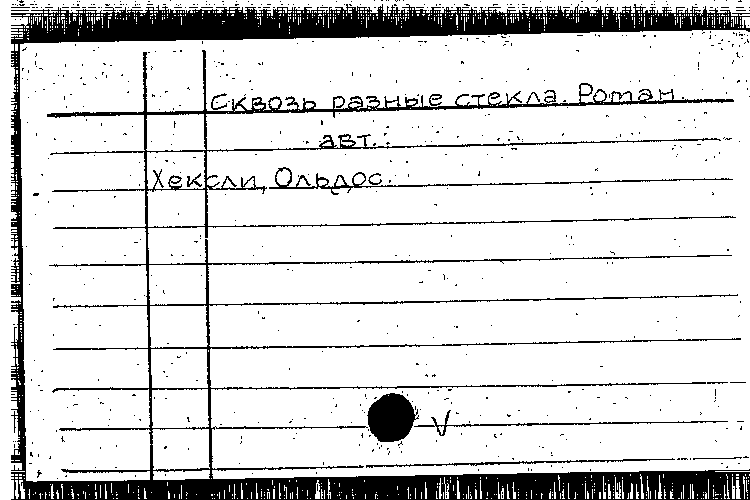 Сквозь разные стекла. Роман.
авт.:
Хексли, Ольдос.
V